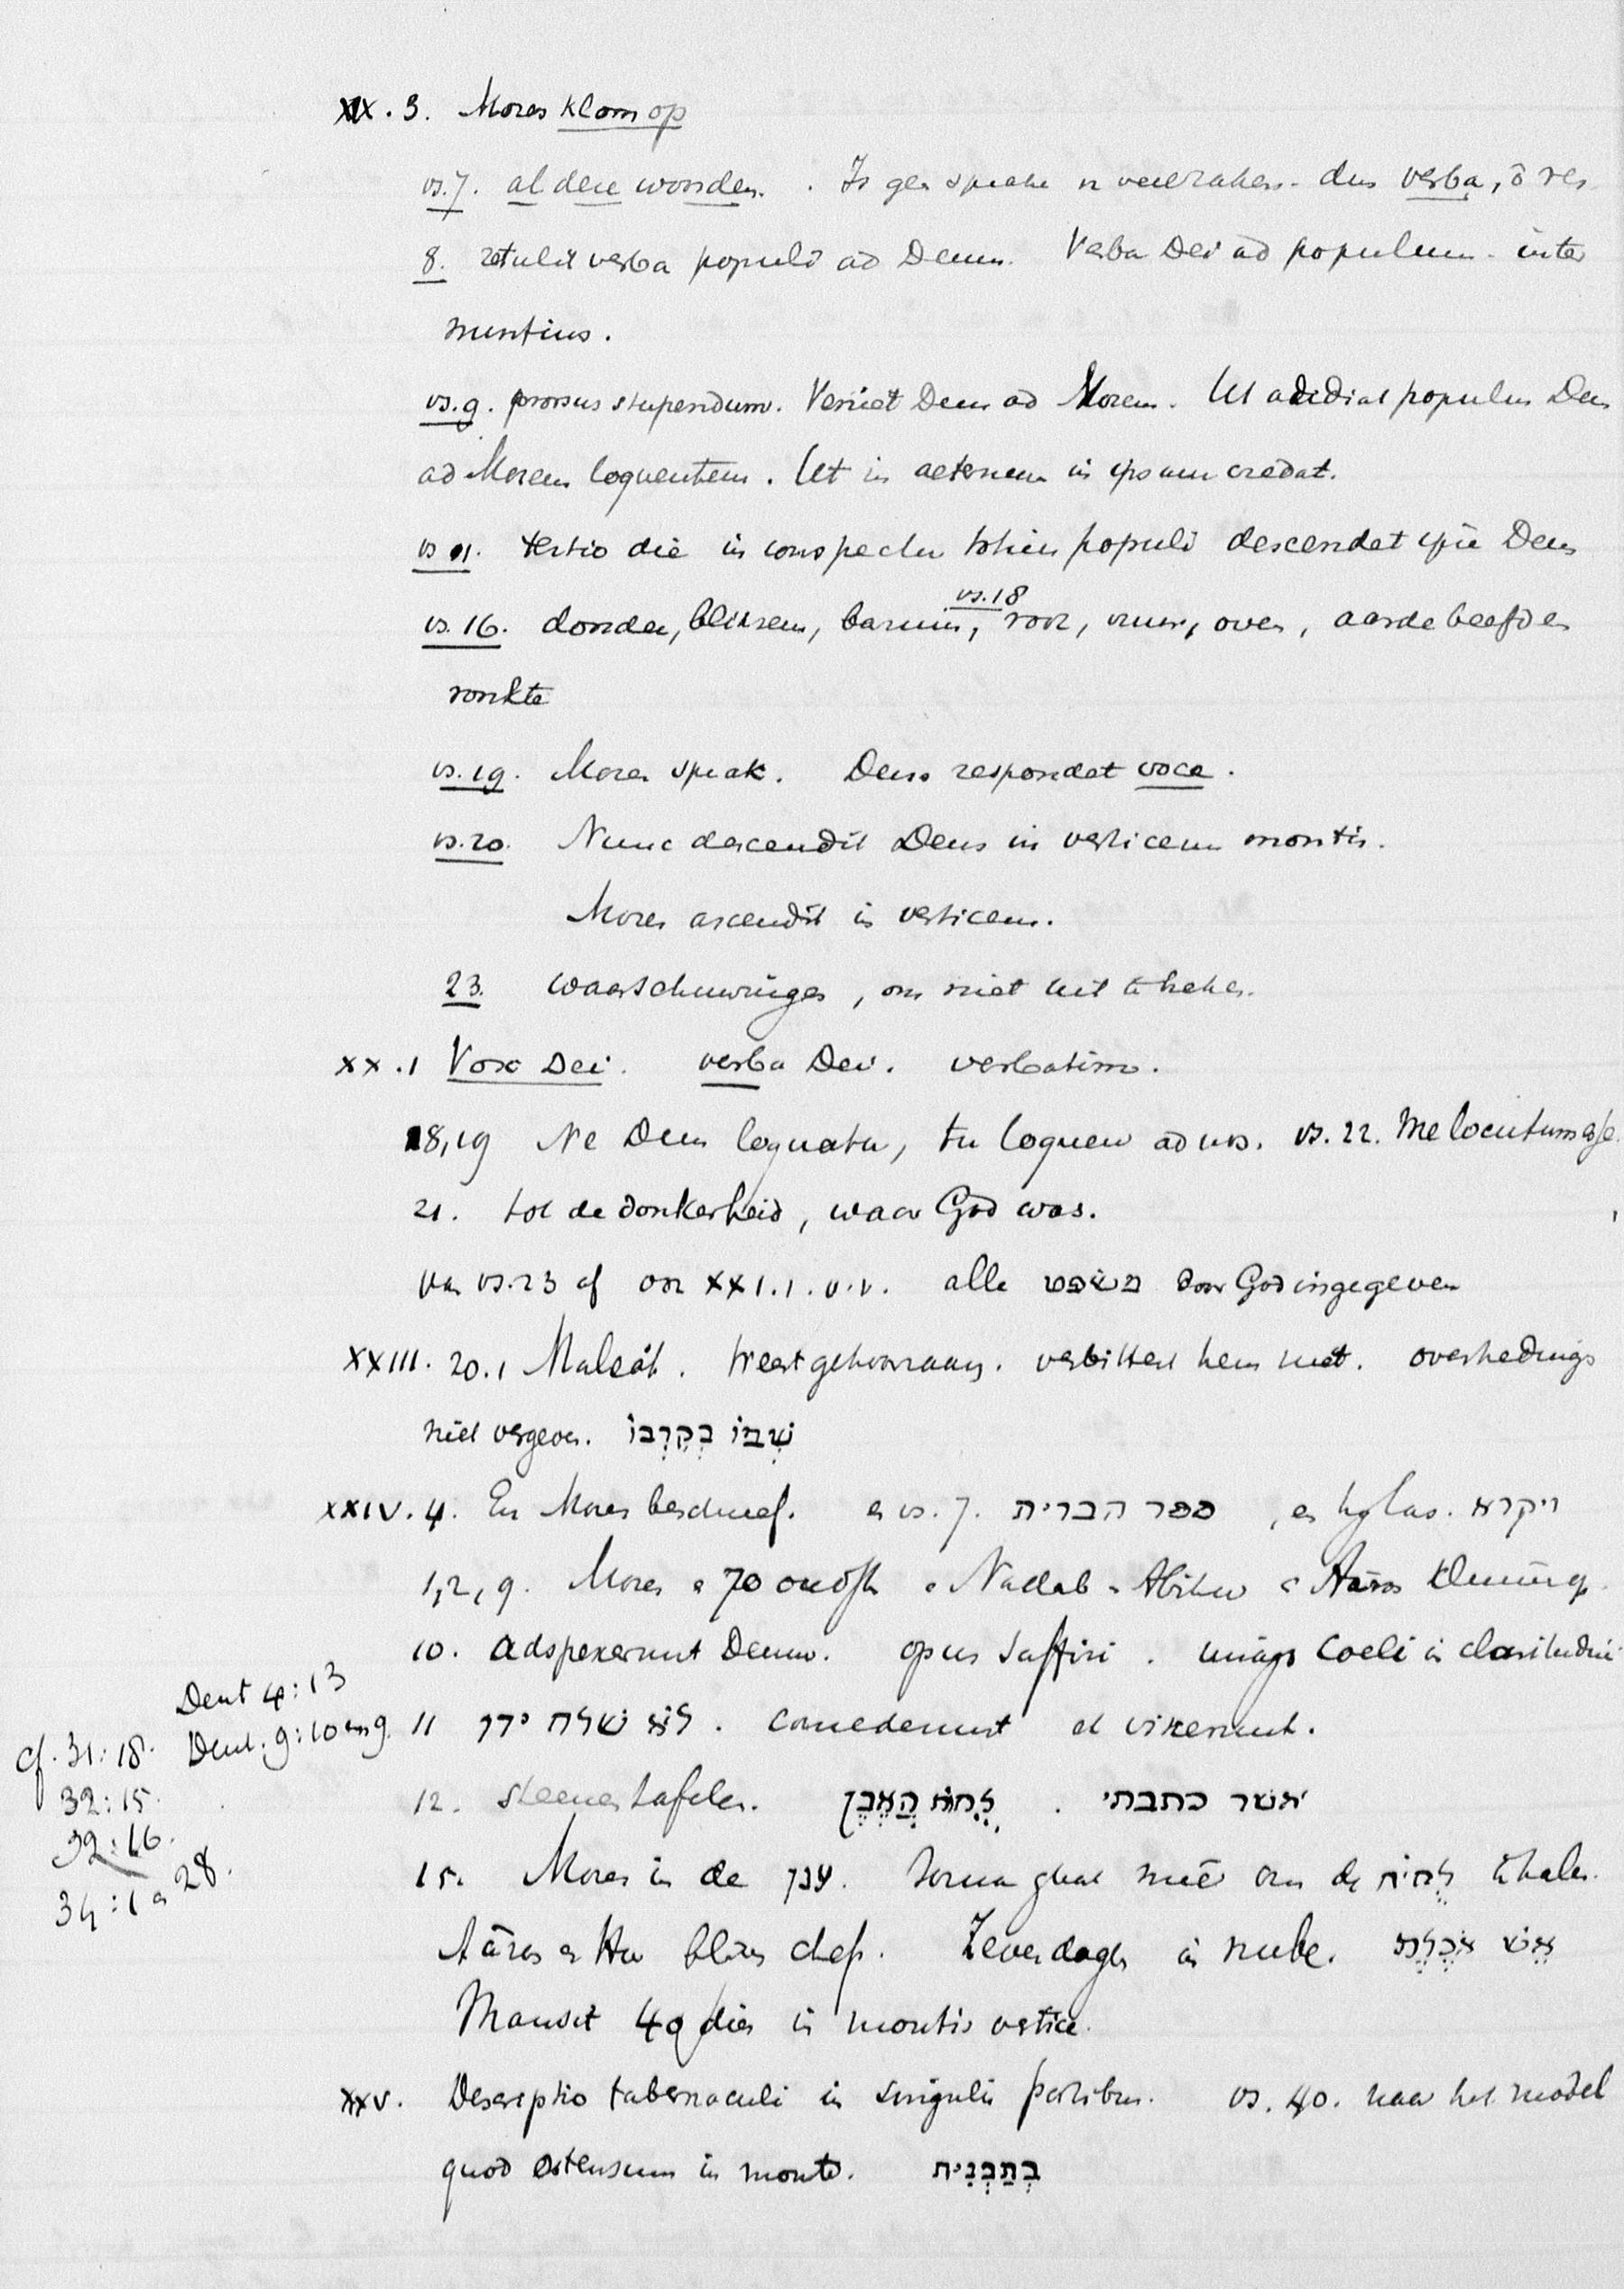 XIX. 3. Mozes klom op
vs. 7. al deze woorden. Is geen sprake v. veelzaken. dus verba, ō res
8. retulit verba populi ad Deum. Verba Dei ad populum. inter
nuntius.
vs. 9. prorsus stupendum. Veniet Deus ad Mozem. Ut audiat populus Deum
ad Mozem loquentem. Ut in aeternum in ipsum credat.
vs 11. tertio die in conspectu totius populi descendet ipse Deus
vs. 18
vs. 16. donder, bliksem, bazuin, rook, vuur, oven, aarde beefde en
ronkte
vs. 19. Mozes sprak. Deus respondet voce.
vs. 20. Nunc descendit Deus in verticem montis.
Mozes ascendit in verticem.
23. waarschuwingen, om niet uit te
XX. 1 Vox Dei. verba Dei. verbatim.
18,19 Ne Deus loquatur, tu loquere ad nos. vs. 22. Me locutum esse.
21. tot de donkerheid, waar God was.
van vs. 23 af ook XXI. 1. v.v. alle משפט door God ingegeven
XXIII. 20. 1 Maleák. Weest gehoorzaam. verbittert hem niet. overtredings
niet vergeven. שְׁמִוֹ בְּקִרְבּוֹ
XXIV. 4. En Mozes beschreef. en vs. 7. ספר הברית, en hij las. ויקרא
1, 2, 9. Mozes en 70 oudsten en Nadab en Abihu en Aäron klommen op.
10. adspexerunt Deum. opus saffiri. imago coeli in claritudine
Deut 4:13
Deut. 9:10 en 9.
11 לא שלח ידו. comederunt et vixerunt.
cf. 31:18.
32:15.
32:16.
34:1 en 28.
12. steenen tafelen. לֻחֹת הָאֶבֶן. אשר כתבתי
15. Mozes in de ענן. Jozua ghat meē om de לחות te halen.
Aäron en Hur bleven achter. Zeven dagen in nube. אֵשׁ אֹכֶלֶת
Mansit 40 dies in montis vertice.
XXV. Descriptio tabernaculi in singulis partibus. vs. 40. naar het model
quod ostensum in monte. בְּתַבְנִית